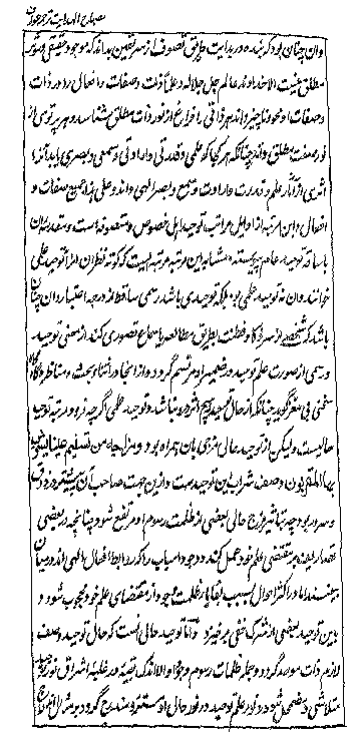 مصباح الهدایت ترجمه عوارف
و آن چنان بود که بنده در بدایت طریق تصوف از سر یقین بداند که موجود حقیقی و مؤثر
مطلق نیست الا خداوند عالم جل جلاله و جمله ذوات و صفات و افعال را در ذات
و صفات او محو و ناچیز داند هر ذاتی را فروغ از نور ذات مطلق شناسد و هر پرتوی از
نور صفت مطلق داند چنانکه هر کجا که علمی و قدرتی و ارادتی و سمعی و بصری یابد آنرا
اثری از آثار علم و قدرت و ارادت و سمع و بصر الهی داند و علی هذا جمیع صفات و
افعال و این مرتبه از اوایل مراتب توحید اهل خصوص و متصوفه است و مقدمه آن
با ساقه توحید عام پیوسته و مشابه این مرتبه مرتبه ایست که کوته نظران آنرا توحید علمی
خوانند و آن نه توحید علمی بود بلکه توحیدی باشد رسمی ساقط از درجه اعتبار و آن چنان
باشد که شخصی از سر ذکا و فطنت بطریق مطالعه یا سماع تصوری کند از معنی توحید
و رسمی از صورت علم توحید در ضمیر او مرتسم گردد و از آنجا در اثناء بحث و مناظره گاه گاه
سخنی بی مغز گوید چنانکه از حال توحید هیچ اثر درو نباشد و توحید علمی اگرچه فرود مرتبه توحید
حالیست ولیکن از توحید حالی مزجی بآن همراه بود و مزاجه من تسنیم عینا یشرب
بها المقربون وصف شراب این توحید ست و ازین جهت صاحب آن بیشتر در ذوق
و سرور بود چه بتاثیر مزج حالی بعضی از ظلمت رسوم او مرتفع شود چنانچه در بعضی
تصاریف بر مقتضی علم خود عمل کند و وجود اسباب را که روابط افعال الهی اند در میان
نبیند اما در اکثر احوال بسبب بقایاء ظلمت وجود از مقتضاء علم خود محجوب شود و
باین توحید بعضی از شرک خفی برخیزد و اما توحید حالی آنست که حال توحید وصف
لازم ذات موحد گردد و جمله ظلمات رسوم وجود او الا اندک بقیه در غلبه اشراق نور توحید
متلاشی و مضمحل شود و نور علم توحید در نور حال او مستتر و مندرج گردد بر مثال اندراج